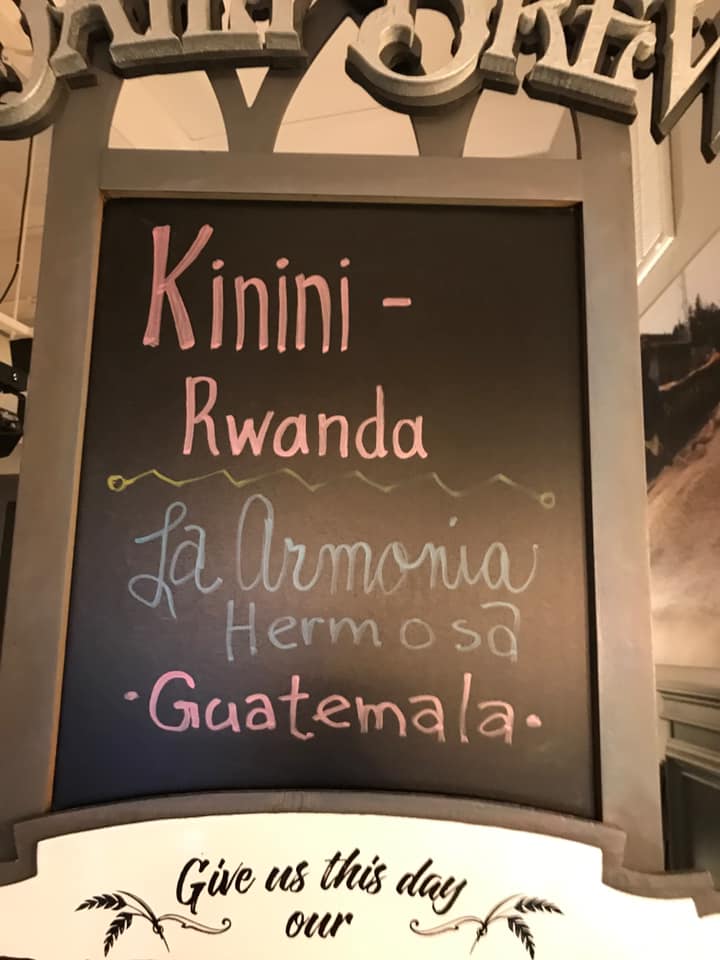 DAILY BREW
Kinini -
Rwanda
La Armonia
Hermosa
·Guatemala·
Give us this day
our